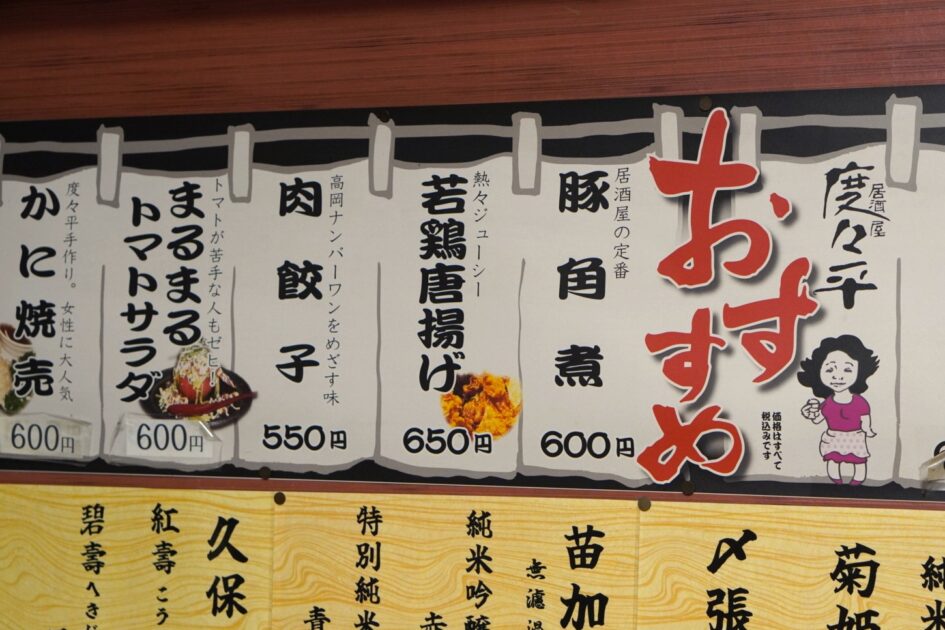 居酒屋
度々平
おすすめ
価格はすべて
税込みです
居酒屋の定番
豚角煮
600円
熱々ジューシー
若鶏唐揚げ
650円
高岡ナンバーワンをめざす味
肉餃子
550円
トマトが苦手な人もゼヒ!
まるまる
トマトサラダ
600円
度々平手作り。女性に大人気
かに焼売
600円
純
菊姫
〆張
苗加
無濾過
純米吟醸
赤
特別純米
青
久保
紅壽 こう
碧壽 へき